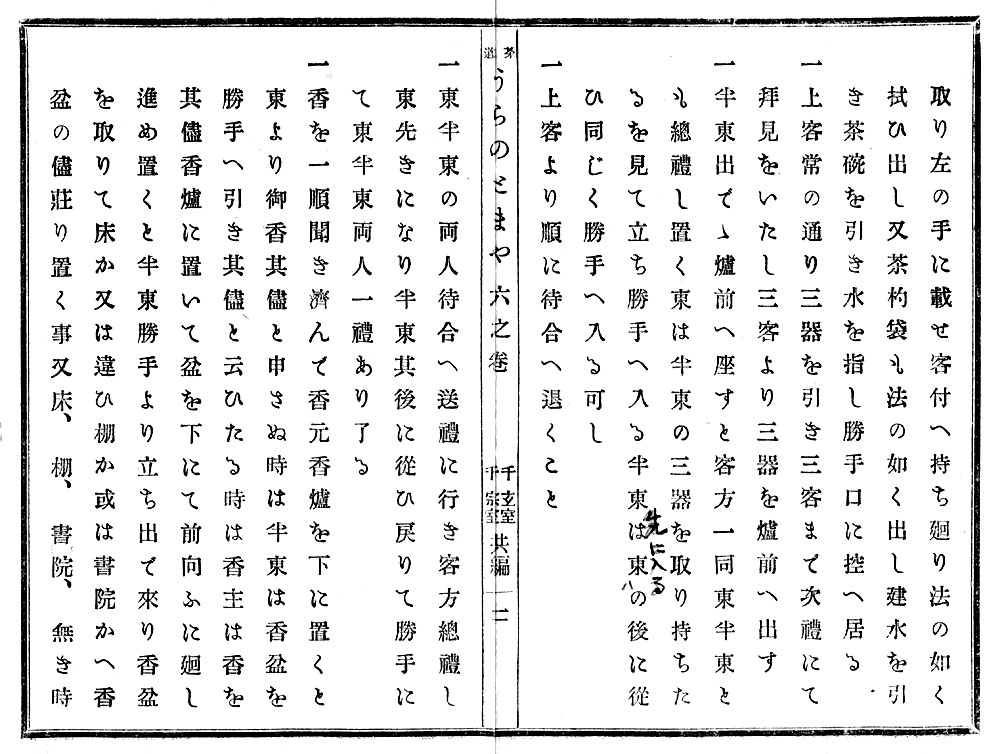 取り左の手に載せ客付へ持ち廻り法の如く
拭ひ出し又茶杓袋も法の如く出し建水を引
き茶碗を引き水を指し勝手口に控へ居る
一上客常の通り三器を引き三客まで次禮にて
拜見をいたし三客より三器を爐前へ出す
一半東出でゝ爐前へ座すと客方一同東半東と
も總禮し置く東は半東の三器を取り持ちた
るを見て立ち勝手へ入る半東は東の後に從
先に入る
ハ
ひ同じく勝手へ入る可し
一上客より順に待合へ退くこと
茶道
うらのとまや六之巻
千玄室
千宗室
共編
二
一東半東の両人待合へ送禮に行き客方總禮し
東先きになり半東其後に從ひ戻りて勝手に
て東半東両人一禮あり了る
一香を一順聞き濟んで香元香爐を下に置くと
東より御香其儘と申さぬ時は半東は香盆を
勝手へ引き其儘と云ひたる時は香主は香を
其儘香爐に置いて盆を下にて前向ふに廻し
進め置くと半東勝手より立ち出で來り香盆
を取りて床か又は違ひ棚か或は書院かへ香
盆の儘莊り置く事又床、棚、書院、無き時